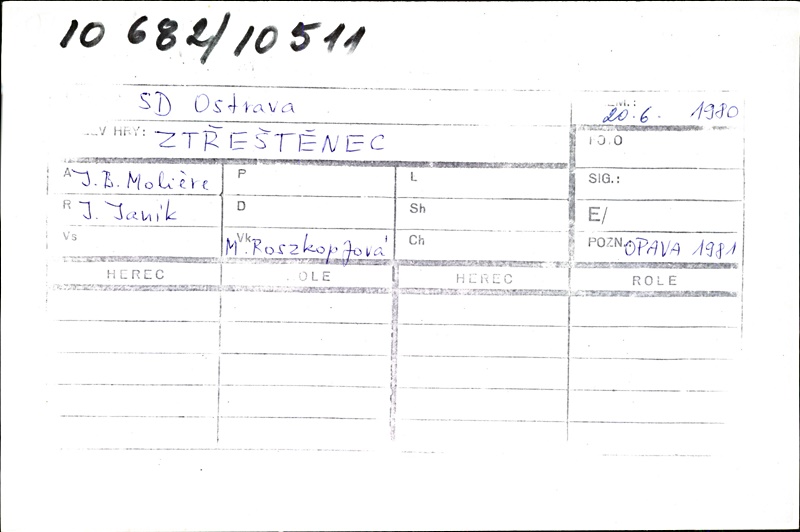 10 682/10511
SD Ostrava
20.6. 1980
V HRY: ZTŘEŠTĚNEC
A J.B. Molière P L SIG.:
R J. Janik D Sh E/
Vs Vk M. Roszkopfová Ch POZN. OPAVA 1981
HEREC OLE HEREC ROLE